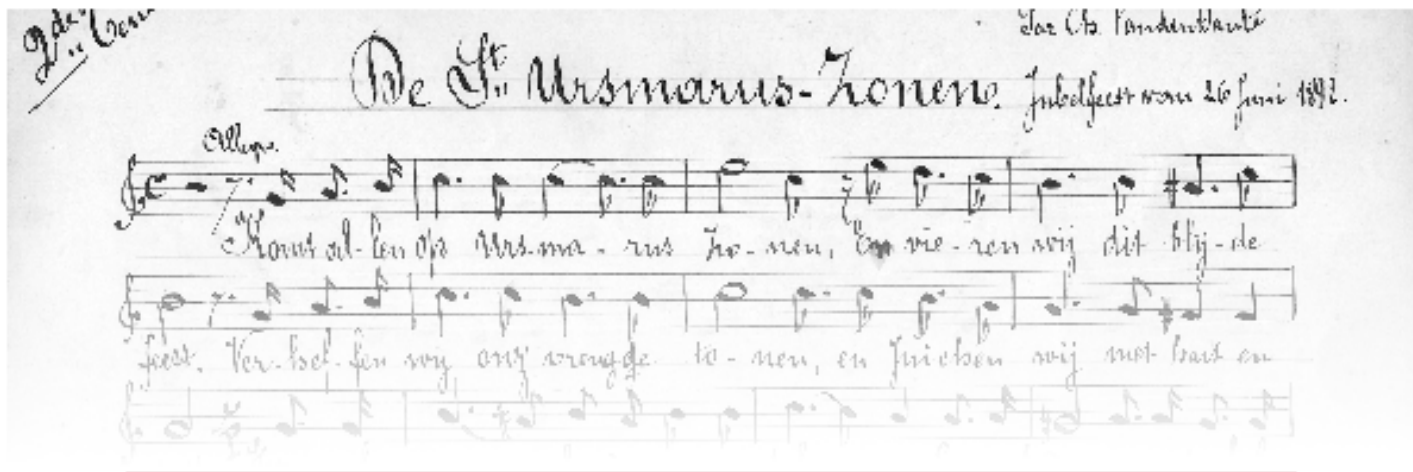 2de
De St. Ursmarus-Zonen.
Jubelfeest van 26 Juni 1892.
Allegro.
Komt al-len op Urs-ma-rus Zo-nen, En vie-ren wij dit blij-de
feest. Ver-hef-fen wij onz vreugde to-nen, en juichen wij met hart en